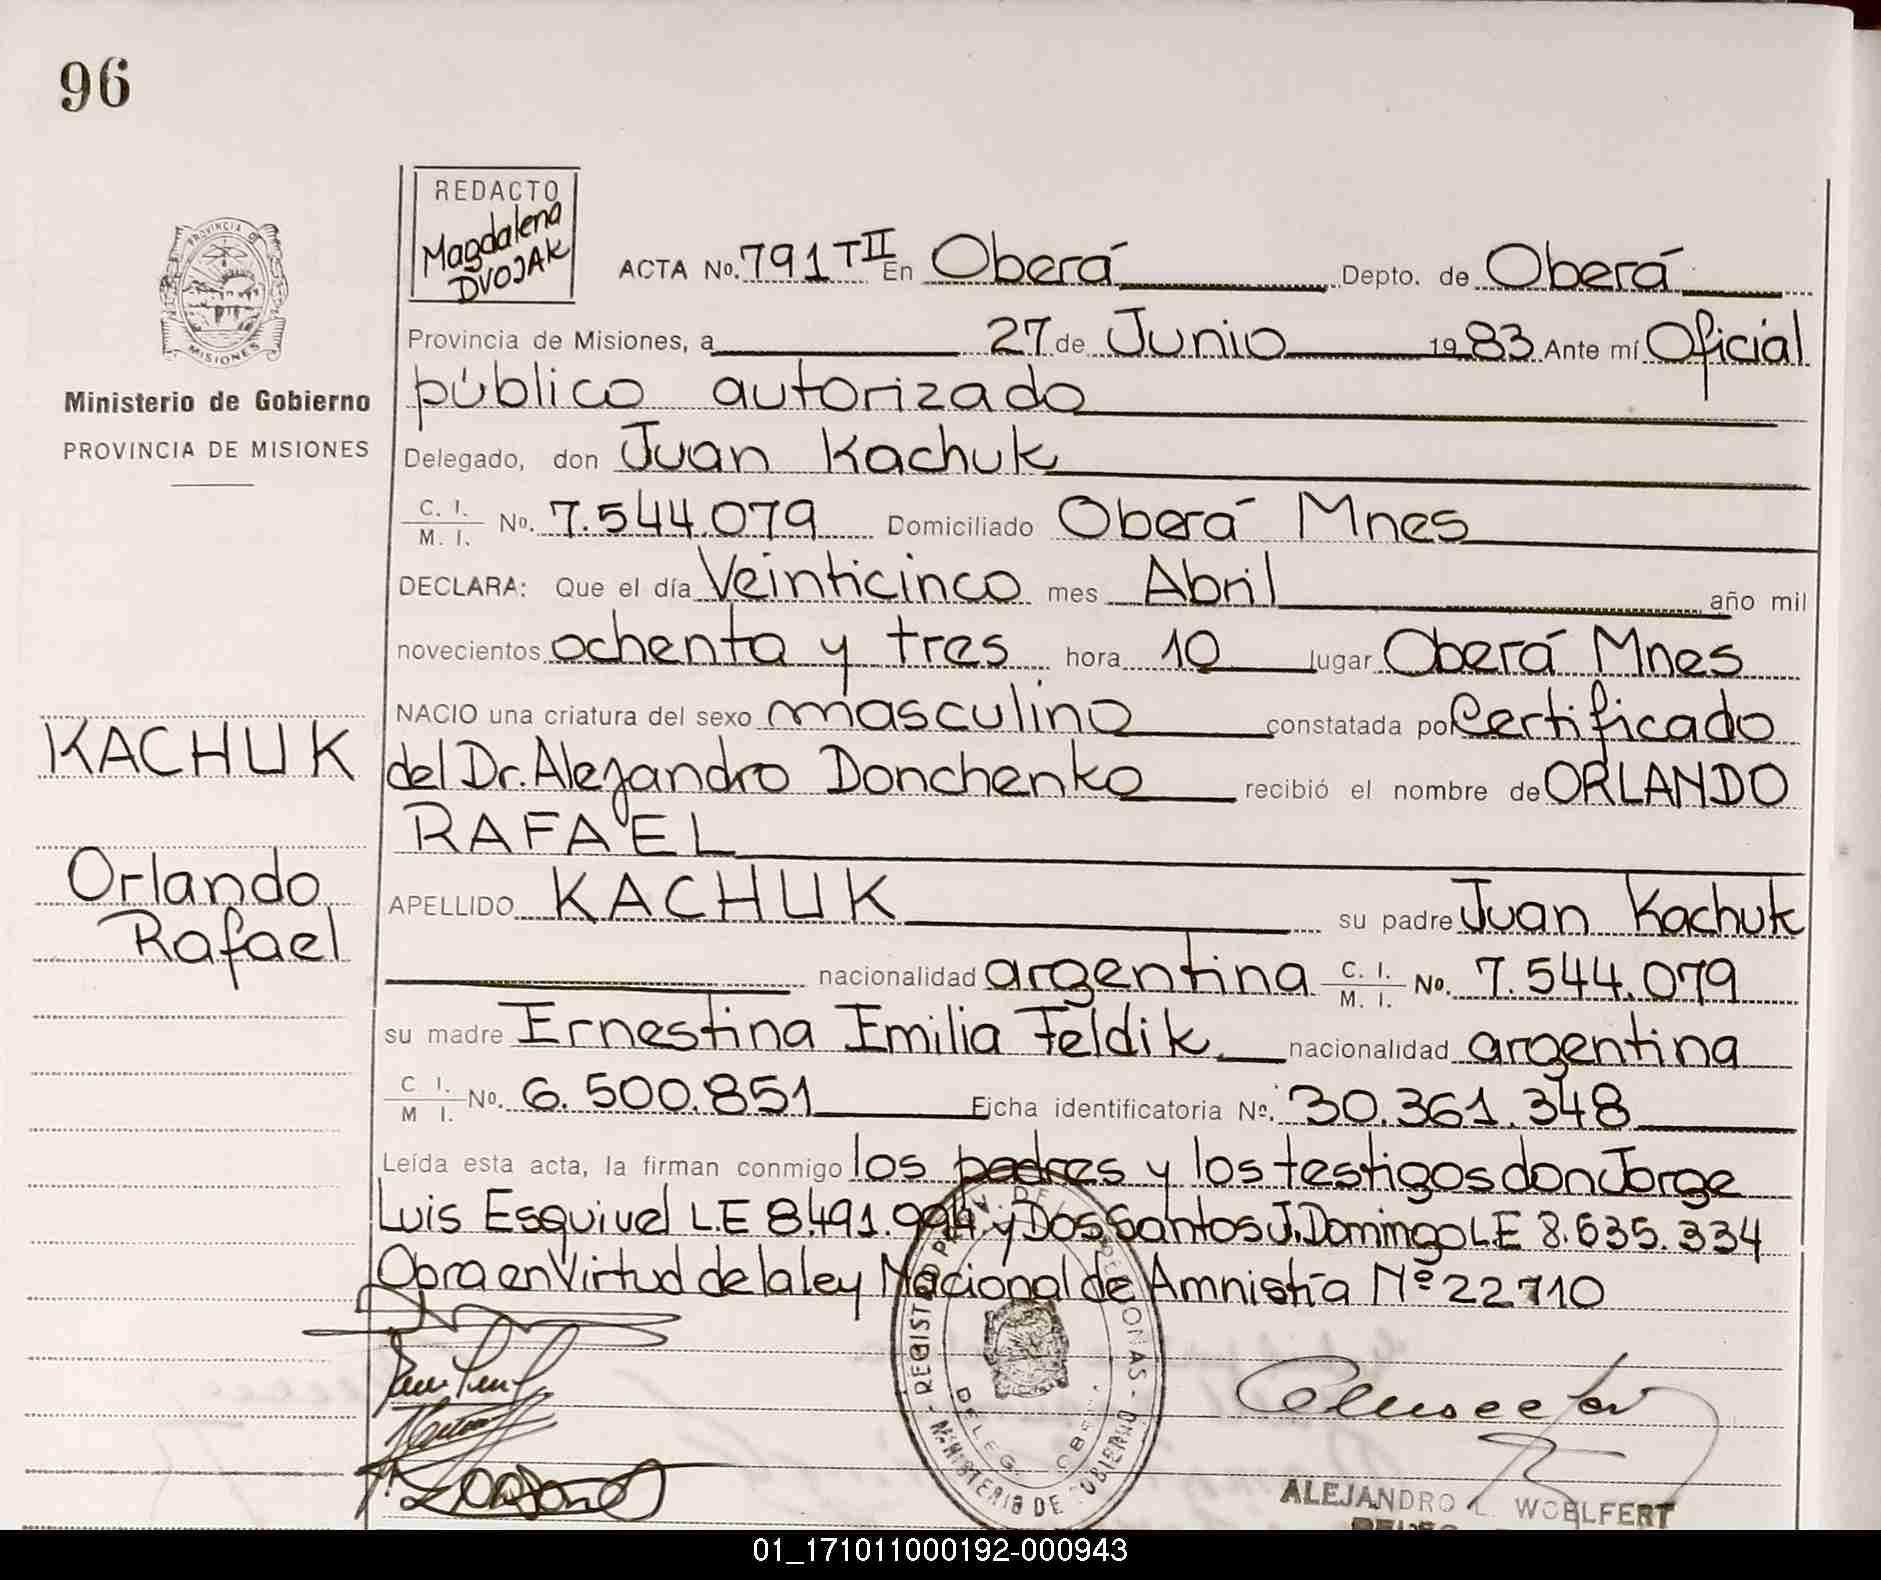 96
REDACTO
Magdalena
DVOJAK
ACTA No. 791 TII En Oberá Depto. de Oberá
Provincia de Misiones, a 27 de Junio 1983 Ante mí Oficial
público autorizado
Ministerio de Gobierno
PROVINCIA DE MISIONES
Delegado, don Juan Kachuk
C. I. / M. I. No. 7.544.079 Domiciliado Oberá Mnes
DECLARA: Que el día Veinticinco mes Abril año mil
novecientos ochenta y tres hora 10 lugar Oberá Mnes
NACIO una criatura del sexo masculino constatada por Certificado
KACHUK
del Dr. Alejandro Donchenko recibió el nombre de ORLANDO
RAFAEL
Orlando
Rafael
APELLIDO KACHUK su padre Juan Kachuk
nacionalidad argentina C. I. / M. I. No. 7.544.079
su madre Ernestina Emilia Feldik nacionalidad argentina
C I. / M I. No. 6.500.851 Ficha identificatoria No. 30.361.348
Leída esta acta, la firman conmigo los padres y los testigos don Jorge
Luis Esquivel LE 8.491.994 y Dos Santos J. Domingo LE 8.635.334
Obra en Virtud de la ley Nacional de Amnistía Nº 22710
MINISTERIO DE GOBIERNO
ALEJANDRO L. WOELFERT
01_171011000192-000943